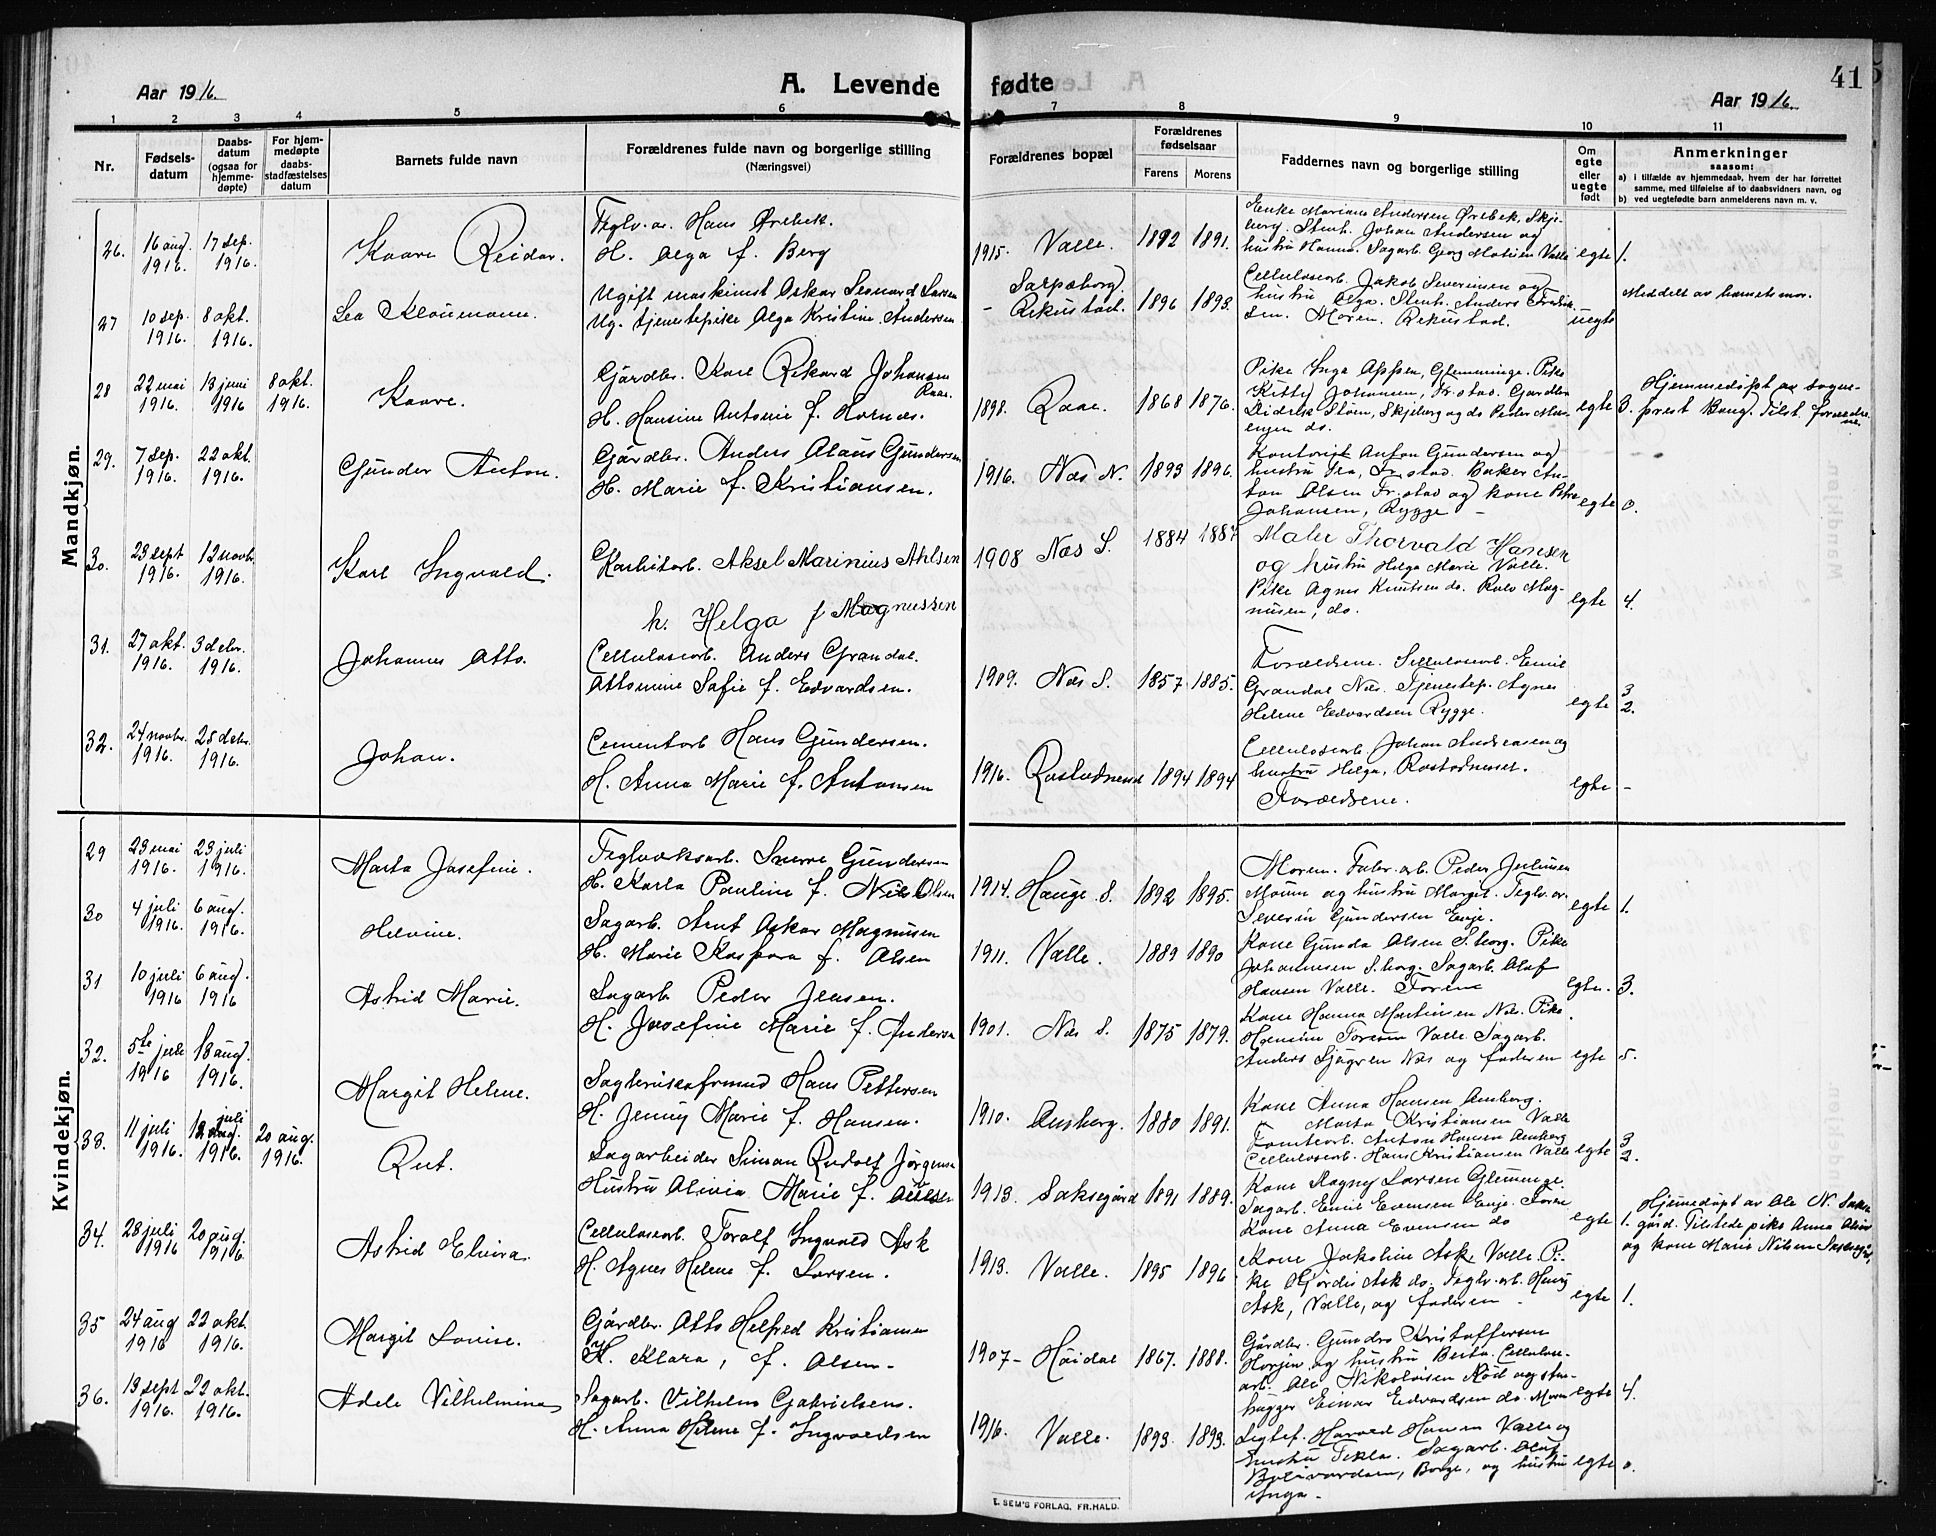 Aar 1916.
A. Levende
fødte
41
Aar 1916.
1 2 3 4 5 6 7 8 9 10 11
Nr.
Fødsels-
datum
Daabs-
datum
(ogsaa for
hjemme-
døpte)
For hjem-
medøpte
daabs-
stadfæstelses
datum
Barnets fulde navn
Forældrenes fulde navn og borgerlige stilling
(Næringsvei)
Forældrenes bopæl
Forældrenes
fødselsaar
Farens
Morens
Faddernes navn og borgerlige stilling
Om
egte
eller
uegte
født
Anmerkninger
saasom:
a) i tilfælde av hjemmedaab, hvem der har forrettet
samme, med tilføielse af to daabsvidners navn, og
b) ved uegtefødte barn anmelderens navn m. v.
Mandkjøn.
26. 16 aug. 17 sep.
1916. 1916.
Kaare Reidar.
Teglv. a. Hans Ørebek.
H. Olga f. Berg
1915. Valle. 1892 1891.
Enke Mariane Andersen Ørebek, Skje-
berg. Stenh. Johan Andersen og
hustru Hanna. Sagarb. Georg Valle
egte 1.
27 10 sep. 8 okt.
1916. 1916.
Ugift maskinist Oskar Leonard Larsen
Ug. tjenestepike Olga Kristine Andersen
- Sarpsborg.
Rekustad. 1896 1898.
Cellulosearb. Jakob Severinsen og
hustru Olga. Stenh. Anders
Moren. Rekustad.
uegte
Meddelt av barnets mor.
28 22 mai 18 juni 8 okt.
1916. 1916 1916.
Kaare.
Gårdbr. Karl Rikard Johansen
Raae.
H. Hansine Antonie f. Hornæs.
1898. Raae. 1868 1876.
Pike Inga Appsen, Glemminge. Pike
Kitty Johansen, Fr.stad. Gårdbr.
Didrik Stöm, Skjeberg og do Peder
do.
egte 3.
Hjemmedøpt av sogne-
prest Bang. Tilst. forældre-
ne.
29. 7 sep. 22 okt.
1916. 1916.
Gunder Anton.
Gårdbr. Anders Olaus Gundersen
H. Marie f. Kristiansen.
1916. Næs N. 1893 1896.
Kontorist Anton Gundersen og
hustru Fr.stad. Baker An-
ton Olsen Fr.stad og kone Petra
Johansen, Rygge -
egte 0.
30. 23 sept 12 novbr.
1916. 1916.
Karl Ingvald.
Aksel Marinius Ahlsen
h. Helga f Magnussen
1908 Næs S. 1884 1887
Maler Thorvald Hansen
og hustru Helga Marie Valle.
Pike Agnes Knutsen do. Rolv Mag-
nusen, do.
egte 4.
31. 27 okt. 3 debr.
1916. 1916.
Johannes Otto.
Cellulosearb. Anders Grandal.
Ottomine Sofie f. Edvardsen.
1909. Næs S. 1857 1885.
Forældrene. Sellulosearb. Emil
Grandal Næs. Tjenestep. Agnes
Helene Edvardsen Rygge.
egte 3
2.
32. 24 novbr. 25 debr.
1916. 1916.
Johan.
Cementarb Hans Gundersen.
H. Anna Marie f. Antonsen
1916. 1894 1894
Cellulosearb. Johan Andreasen og
hustru Helga,
Forældrene.
egte -
Kvindekjøn.
29 23 mai 23 juli
1916. 1916.
Marta Josefine.
Teglverksarb. Snerre Gundersen
H. Karla Pauline f. Nils Olsen
1914. Hauge S. 1892 1895.
Moren. Fabr. arb. Peder Juliusen
Moum og hustru Margit. Teglv. ar.
Severin Gundersen Enje.
egte 1.
30 4 juli 6 aug.
1916. 1916.
Helvine.
Sagarb. Arnt Oskar Magnusen
H. Marie Kaspara f. Olsen
1911. Valle. 1889 1890
Kone Gunda Olsen S.borg. Pike
Johannesen S.borg. Sagarb. Olaf
Hansen Valle.
egte. 3.
31 10 juli 6 aug.
1916 1916
Astrid Marie.
Sagarb Peder Jensen.
H. Josefine Marie f. Anderse
1901. Næs S. 1875 1879.
Kone Hanna Martinsen Næs. Pike
Valle Sagarb.
Anders Sjøgren Næs og faderen
egte 5.
32. 5te juli 18 aug.
1916 1916.
Margit Helene.
Hans Pettersen
H. Jenny Marie f. Hansen.
1910. 1880 1891.
Kone Anna Hansen
Marta Kristiansen Valle
Tomtearb. Anton Hansen
Cellulosearb. Hans Kristiansen Valle
egte 3
2.
33. 11 juli juli 20 aug.
1916. 1916. 1916.
Rut.
Sagarbeider Simon Rudolf Jørgense
Hustru Olivia Marie f. Olsen
1913. Saksegård 1891 1889.
Kone Ragny Larsen Glemminge.
Sagarb. Emil Evensen Enje.
Kone Anna Evensen do
egte 1.
Hjemmedøpt av Ole N. Sakse-
gård. Tilstede pike Anna
og kone Marie Nilsen Saksegård,
34. 28 juli 20 aug.
1916 1916.
Astrid Elvira.
Cellulosearb. Toralf Ingvald Ask
H. Agnes Helene f. Larsen.
1913. Valle. 1895 1896
Kone Jakoline Ask Valle. Pi-
ke Hjørdis Ask do. Teglv. arb. Henry
Ask, Valle, og faderen -
egte 1.
35 24 aug 22 okt.
1916 1916.
Margit Lovise.
Gårdbr. Otto Helfred Kristiansen
H. Klara, f. Olsen-
1907- Höidal 1867. 1888.
Gårdbr. Gundro Kristoffersen
og hustru Berta. Cellulose-
arb. Ole Nikolaisen Röd og sten-
hugger Einar Edvardsen do. Moren
egte 4.
36. 13 sept 22 okt.
1916. 1916.
Adele Vilhelmina
Sagarb. Vilhelm Gabrielsen.
H. Anna Helene f. Ingvaldsen
1916. Valle. 1893. 1893.
Harvod Hansen Valle og
hustru Tekla. Sagarb. Olaf
Borge, og hustru
Inga -
egte 0.
E. SEM'S FORLAG, FR.HALD.